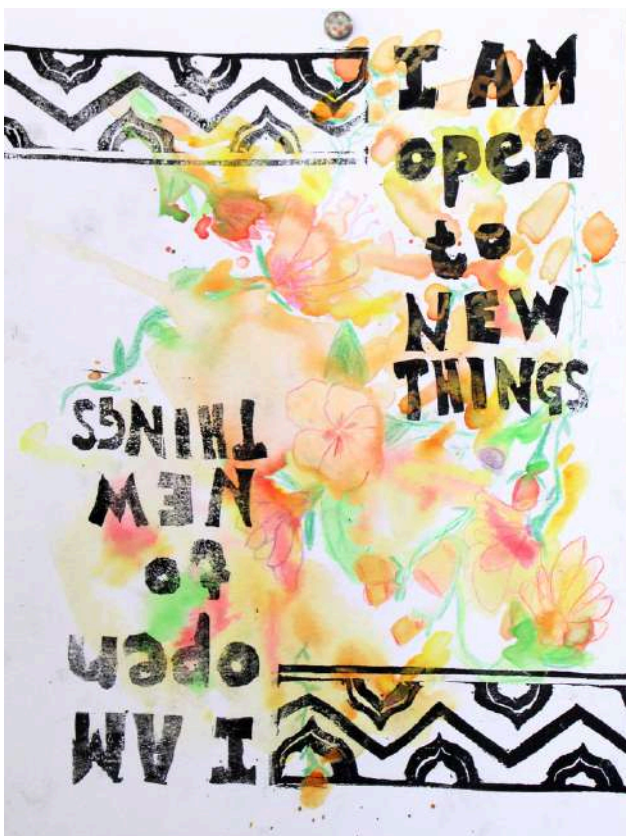 I AM
open
to
NEW
THINGS
I AM
open
to
NEW
THINGS